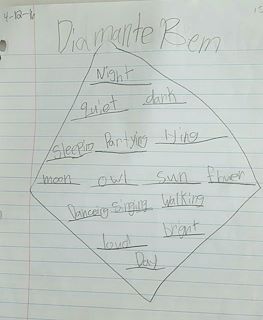 4-12-16
Diamante Bem
Night
quiet dark
Sleeping Partying lying
moon owl sun flower
Danceing Singing Walking
loud bright
Day